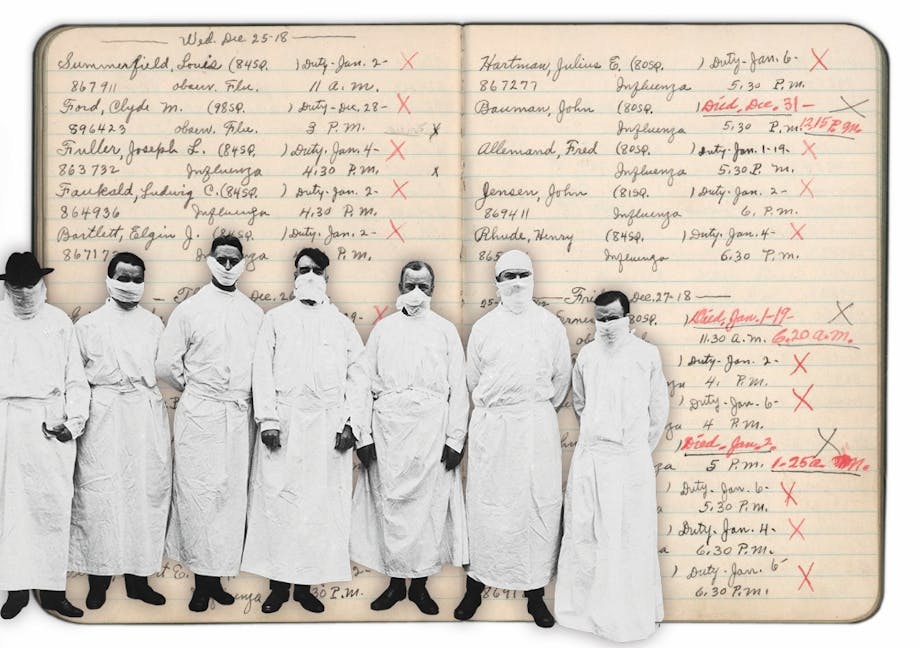 Wed. Dec 25-18
Summerfield, Louis (84SQ. ) Duty-Jan. 2- X
867911 observ. Flu. 11 A. M.
Ford, Clyde M. (98SQ. ) Duty-Dec, 28- X
896423 observ. Flu. 3 P. M. x
Fuller, Joseph L. (84SQ. ) Duty-Jan. 4- X
863732 Influenza 4:30 P.M. x
Faukald, Ludwig C. (84SQ. ) Duty-Jan. 2- X
864936 Influenza 4.30 P. M.
Bartlett, Elgin J. (84SQ. ) Duty-Jan. 2- X
P. M.
Dec. 26
X
2-
30 P.M.
Hartman, Julius E. (80SQ. ) Duty-Jan. 6- X
867277 Influenza 5:30 P.M.
Bauman, John (80SQ. ) Died, Dec. 31- X
Influenza 5:30 P.M. 12,15 P.M.
Allemand, Fred (80SQ. ) Duty-Jan. 1-19- X
Influenza 5.30 P. M.
Jensen, John (81SQ. ) Duty-Jan. 2- X
869411 Influenza 6. P.M.
Rhude, Henry (84SQ. ) Duty-Jan. 4- X
Influenza 6.30 P.M.
Dec, 27-18
80SQ. ) Died, Jan. 1-19- X
11.30 A. M. 6.20 a. m.
) Duty-Jan. 2- X
4. P.M.
) Duty-Jan. 6- X
4 P.M.
) Died, Jan. 2, X
5 P.M. 1-25 a. m.
) Duty-Jan. 6- X
5:30 P.M.
) Duty-Jan. 4- X
6.30 P.M.
) Duty-Jan. 6- X
6.30 P.M.